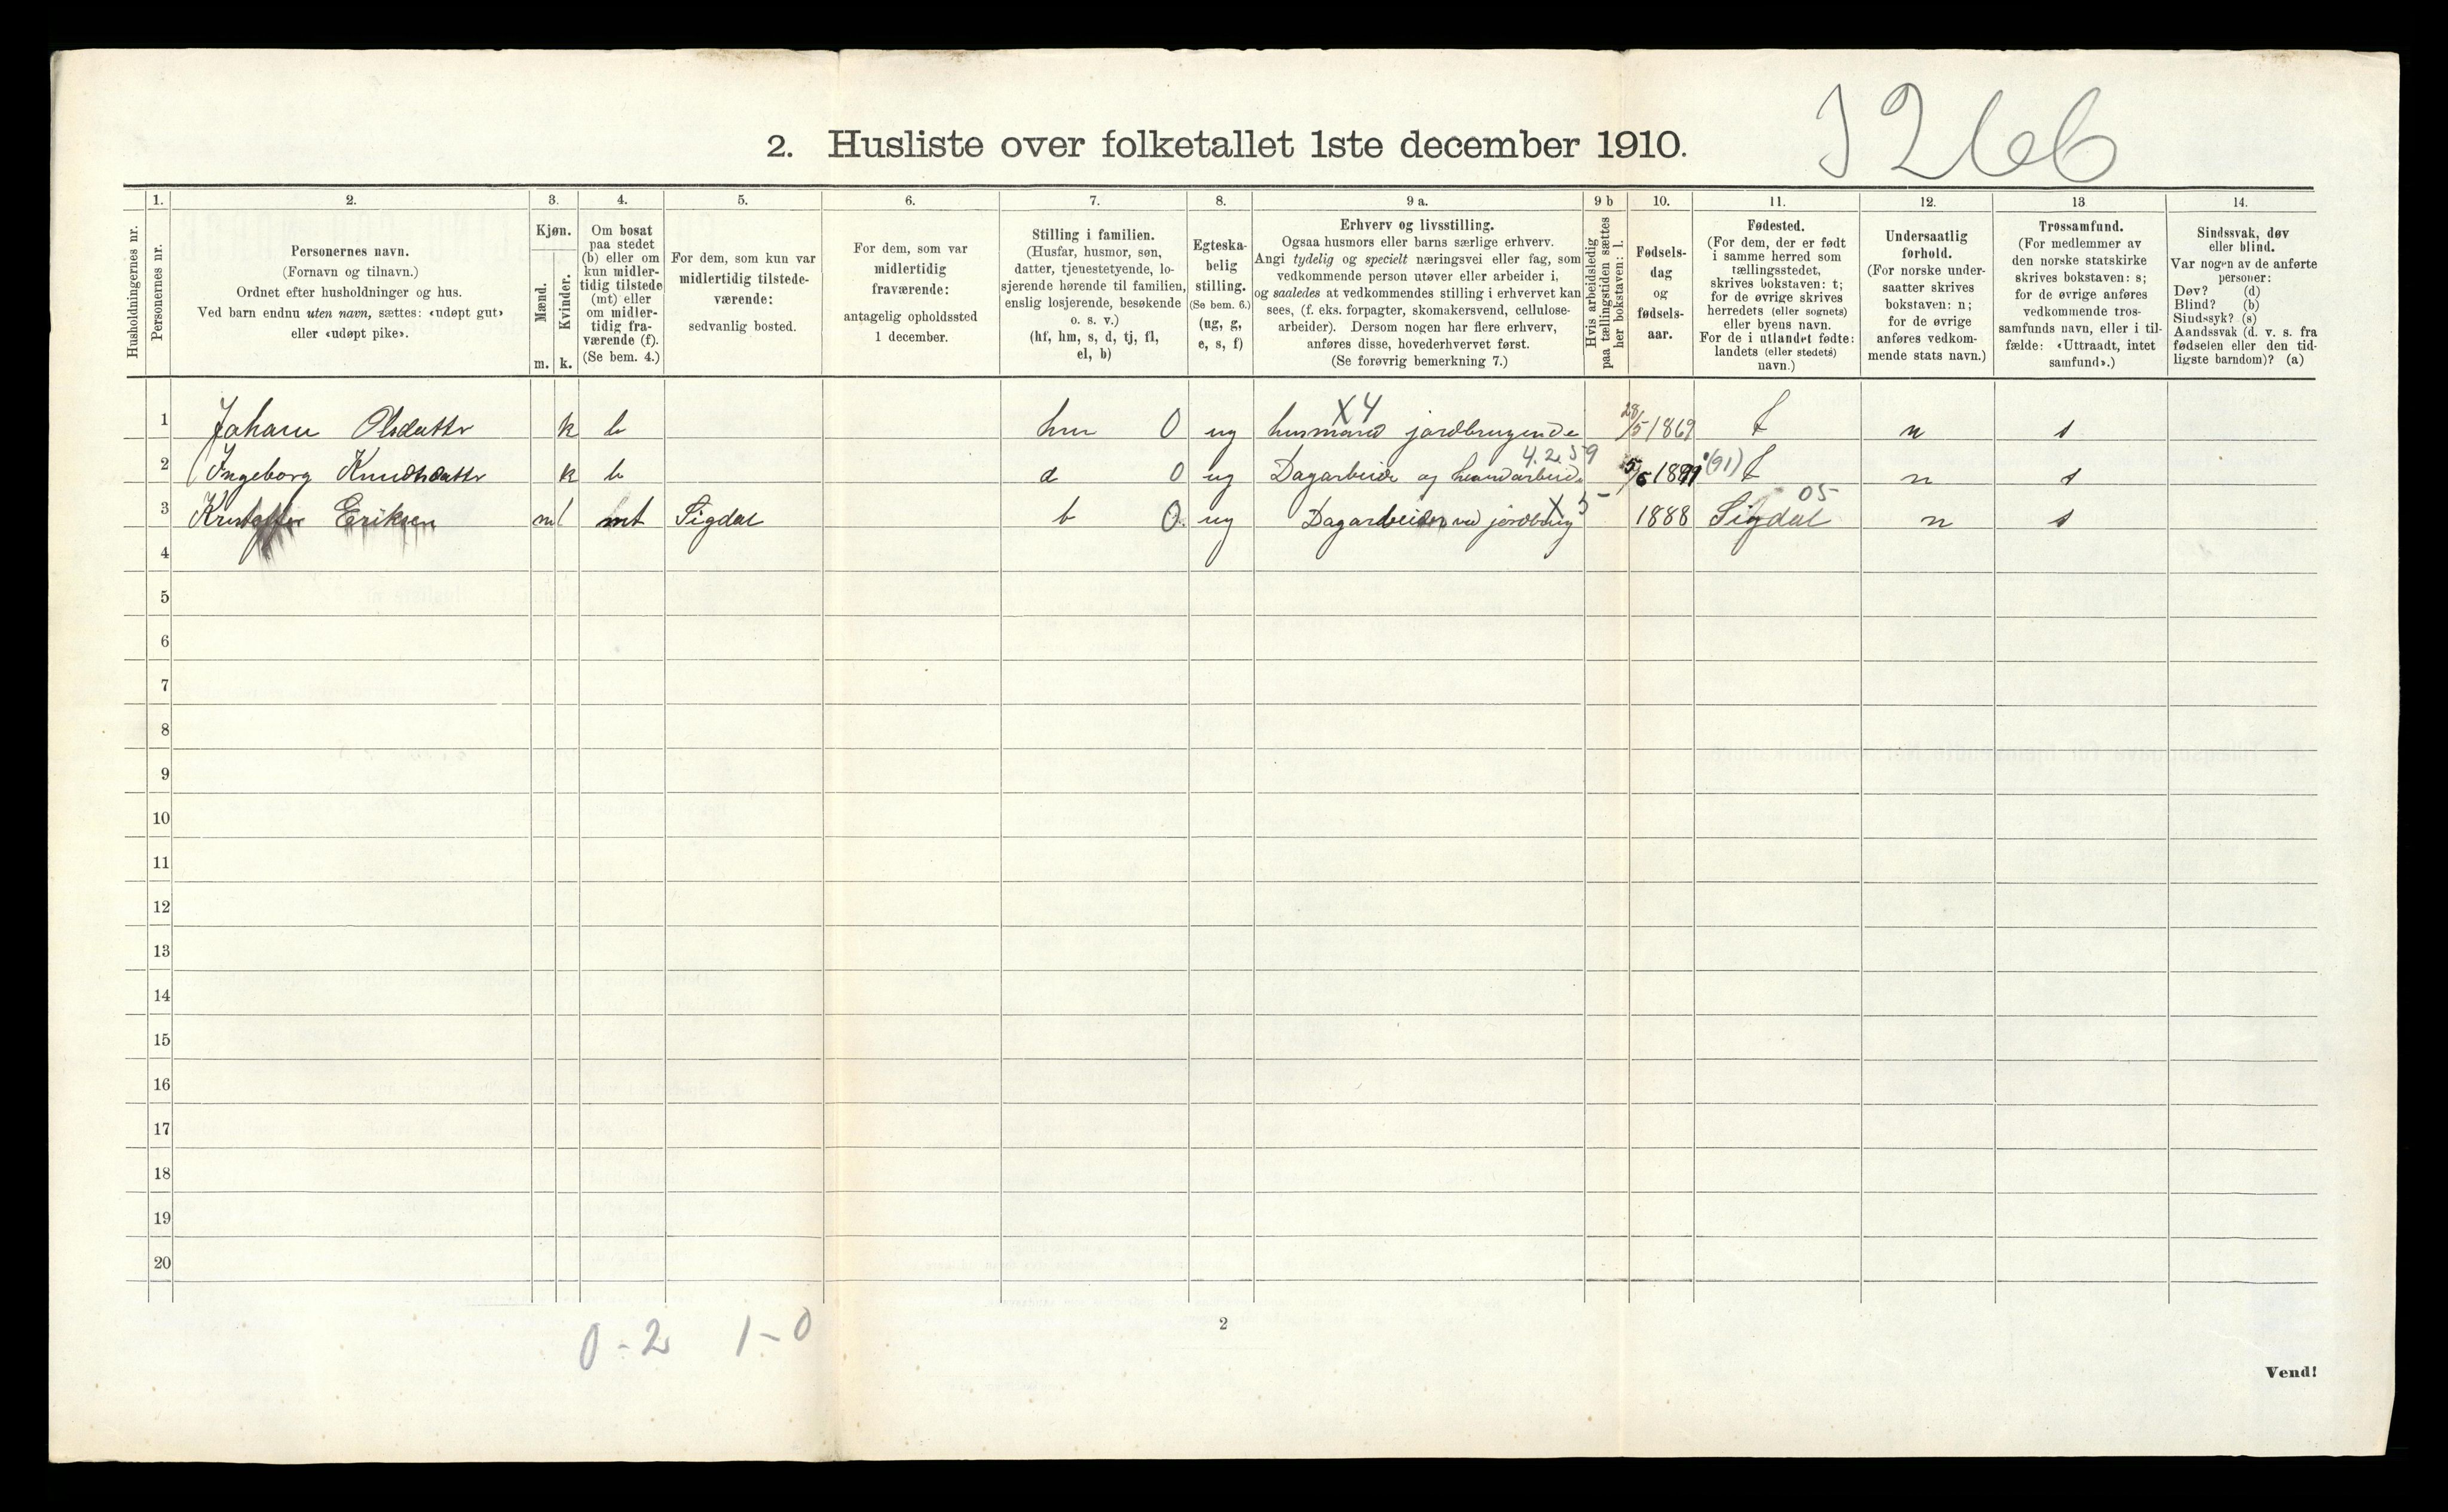 2. Husliste over folketallet 1ste december 1910.
Husholdningernes nr.
1.
Personernes nr.
2.
Personernes navn.
(Fornavn og tilnavn.)
Ordnet efter husholdninger og hus.
Ved barn endnu uten navn, sættes: «udøpt gut»
eller «udøpt pike».
3.
Kjøn.
Mænd.
Kvinder.
m. k.
4.
Om bosat
paa stedet
(b) eller om
kun midler-
tidig tilstede
(mt) eller
om midler-
tidig fra-
værende (f).
(Se bem. 4.)
5.
For dem, som kun var
midlertidig tilstede-
værende:
sedvanlig bosted.
6.
For dem, som var
midlertidig
fraværende:
antagelig opholdssted
1 december.
7.
Stilling i familien.
(Husfar, husmor, søn,
datter, tjenestetyende, lo-
sjerende hørende til familien,
enslig losjerende, besøkende
o. s. v.)
(hf, hm, s, d, tj, fl,
el, b)
8.
Egteska-
belig
stilling.
(Se bem. 6.)
(ug, g,
e, s, f)
9 a.
Erhverv og livsstilling.
Ogsaa husmors eller barns særlige erhverv.
Angi tydelig og specielt næringsvei eller fag, som
vedkommende person utøver eller arbeider i,
og saaledes at vedkommendes stilling i erhvervet kan
sees, (f. eks. forpagter, skomakersvend, cellulose-
arbeider). Dersom nogen har flere erhverv,
anføres disse, hovederhvervet først.
(Se forøvrig bemerkning 7.)
9 b
Hvis arbeidsledig
paa tællingstiden sættes
her bokstaven: l.
10.
Fødsels-
dag
og
fødsels-
aar.
11.
Fødested.
(For dem, der er født
i samme herred som
tællingsstedet,
skrives bokstaven: t;
for de øvrige skrives
herredets (eller sognets)
eller byens navn.
For de i utlandet fødte:
landets (eller stedets)
navn.)
12.
Undersaatlig
forhold.
(For norske under-
saatter skrives
bokstaven: n;
for de øvrige
anføres vedkom-
mende stats navn.)
13
Trossamfund.
(For medlemmer av
den norske statskirke
skrives bokstaven: s;
for de øvrige anføres
vedkommende tros-
samfunds navn, eller i til-
fælde: «Uttraadt, intet
samfund».)
14.
Sindssvak, døv
eller blind.
Var nogen av de anførte
personer:
Døv? (d)
Blind? (b)
Sindssyk? (s)
Aandssvak (d. v. s. fra
fødselen eller den tid-
ligste barndom)? (a)
X4
1 Olsdatter k b hm 0 ug husmand jordbrugende 28/5 1869 t n s
4.2.59
2 Ingeborg Knudtsdatter k b d 0 ug Dagarbeide og haandarbeide 1891 (91) t n s
X5- 05
3 Kristoffer Eriksen m mt Sigdal b 0 ug Dagarbeider ved jordbrug 1888 Sigdal n s
4
5
6
7
8
9
10
11
12
13
14
15
16
17
18
19
20
0-2 1-0
2
Vend!